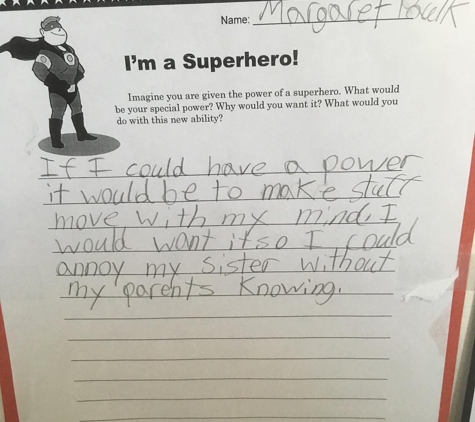 Name: Margaret
I'm a Superhero!
Imagine you are given the power of a superhero. What would
be your special power? Why would you want it? What would you
do with this new ability?
If I could have a power
it would be to make stuff
move with my mind. I
would want it so I could
annoy my sister without
my parents knowing.